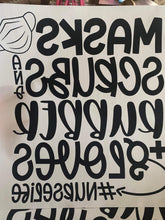 MASKS
AND
SCRUBS
RUBBER
+ GLOVES
#NURSELIFE